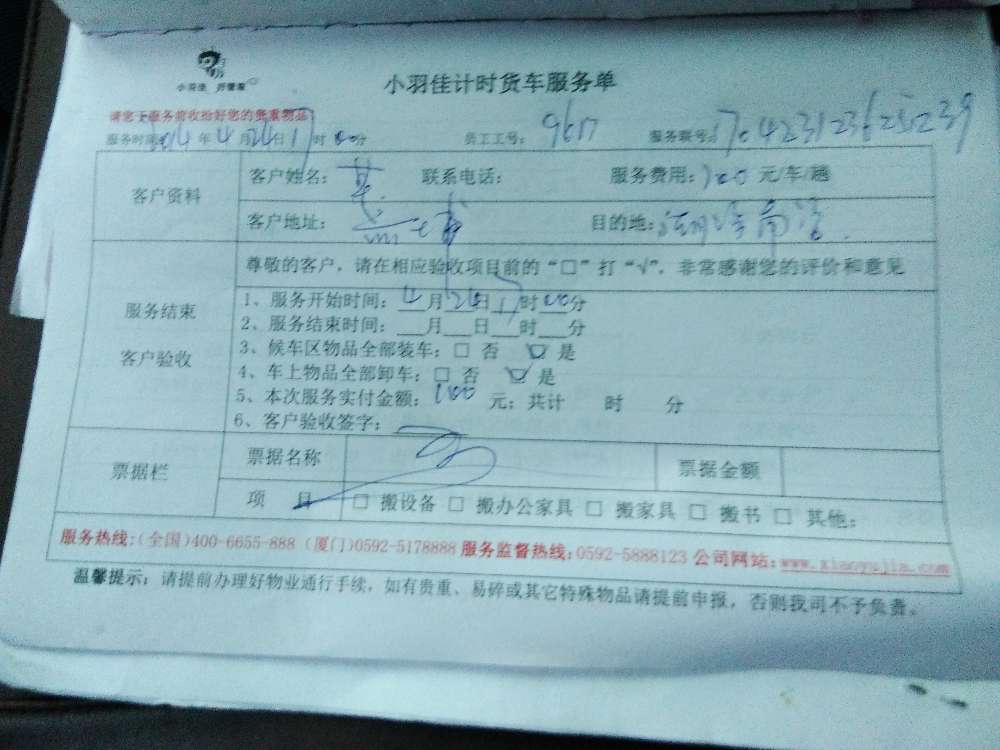 小羽佳 好管家
小羽佳计时货车服务单
请您于服务前收拾好您的贵重物品
服务时间: 2014年4月24日17时00分 员工工号: 9617 服务联号:
客户资料
客户姓名: 联系电话: 服务费用: 100元/车/趟
客户地址: 目的地:
服务结束
客户验收
尊敬的客户，请在相应验收项目前的“□”打“√”，非常感谢您的评价和意见
1、服务开始时间: 4月24日17时00分
2、服务结束时间: ___月___日___时___分
3、候车区物品全部装车: □ 否 ☑ 是
4、车上物品全部卸车: □ 否 ☑ 是
5、本次服务实付金额: 100 元; 共计 时 分
6、客户验收签字:
票据栏
票据名称 票据金额
项 目 □ 搬设备 □ 搬办公家具 □ 搬家具 □ 搬书 □ 其他:
服务热线:(全国)400-6655-888 (厦门)0592-5178888 服务监督热线:0592-5888123 公司网站:www.xiaoyujia.com
温馨提示: 请提前办理好物业通行手续，如有贵重、易碎或其它特殊物品请提前申报，否则我司不予负责。